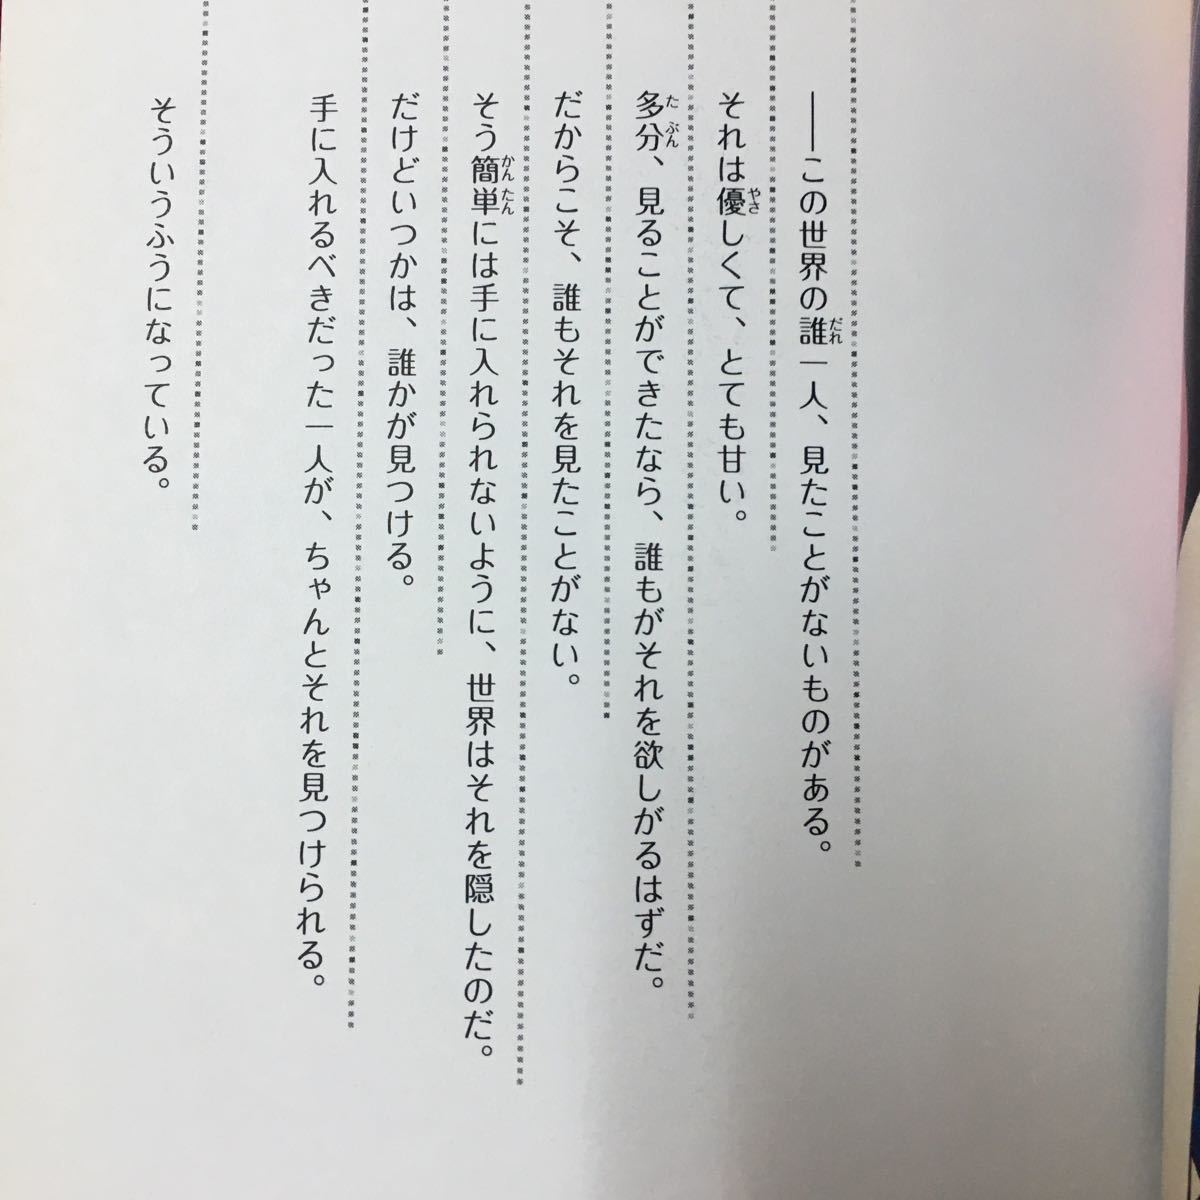 ――この世界の誰一人、見たことがないものがある。
それは優しくて、とても甘い。
多分、見ることができたなら、誰もがそれを欲しがるはずだ。
だからこそ、誰もそれを見たことがない。
そう簡単には手に入れられないように、世界はそれを隠したのだ。
だけどいつかは、誰かが見つける。
手に入れるべきだった一人が、ちゃんとそれを見つけられる。
そういうふうになっている。